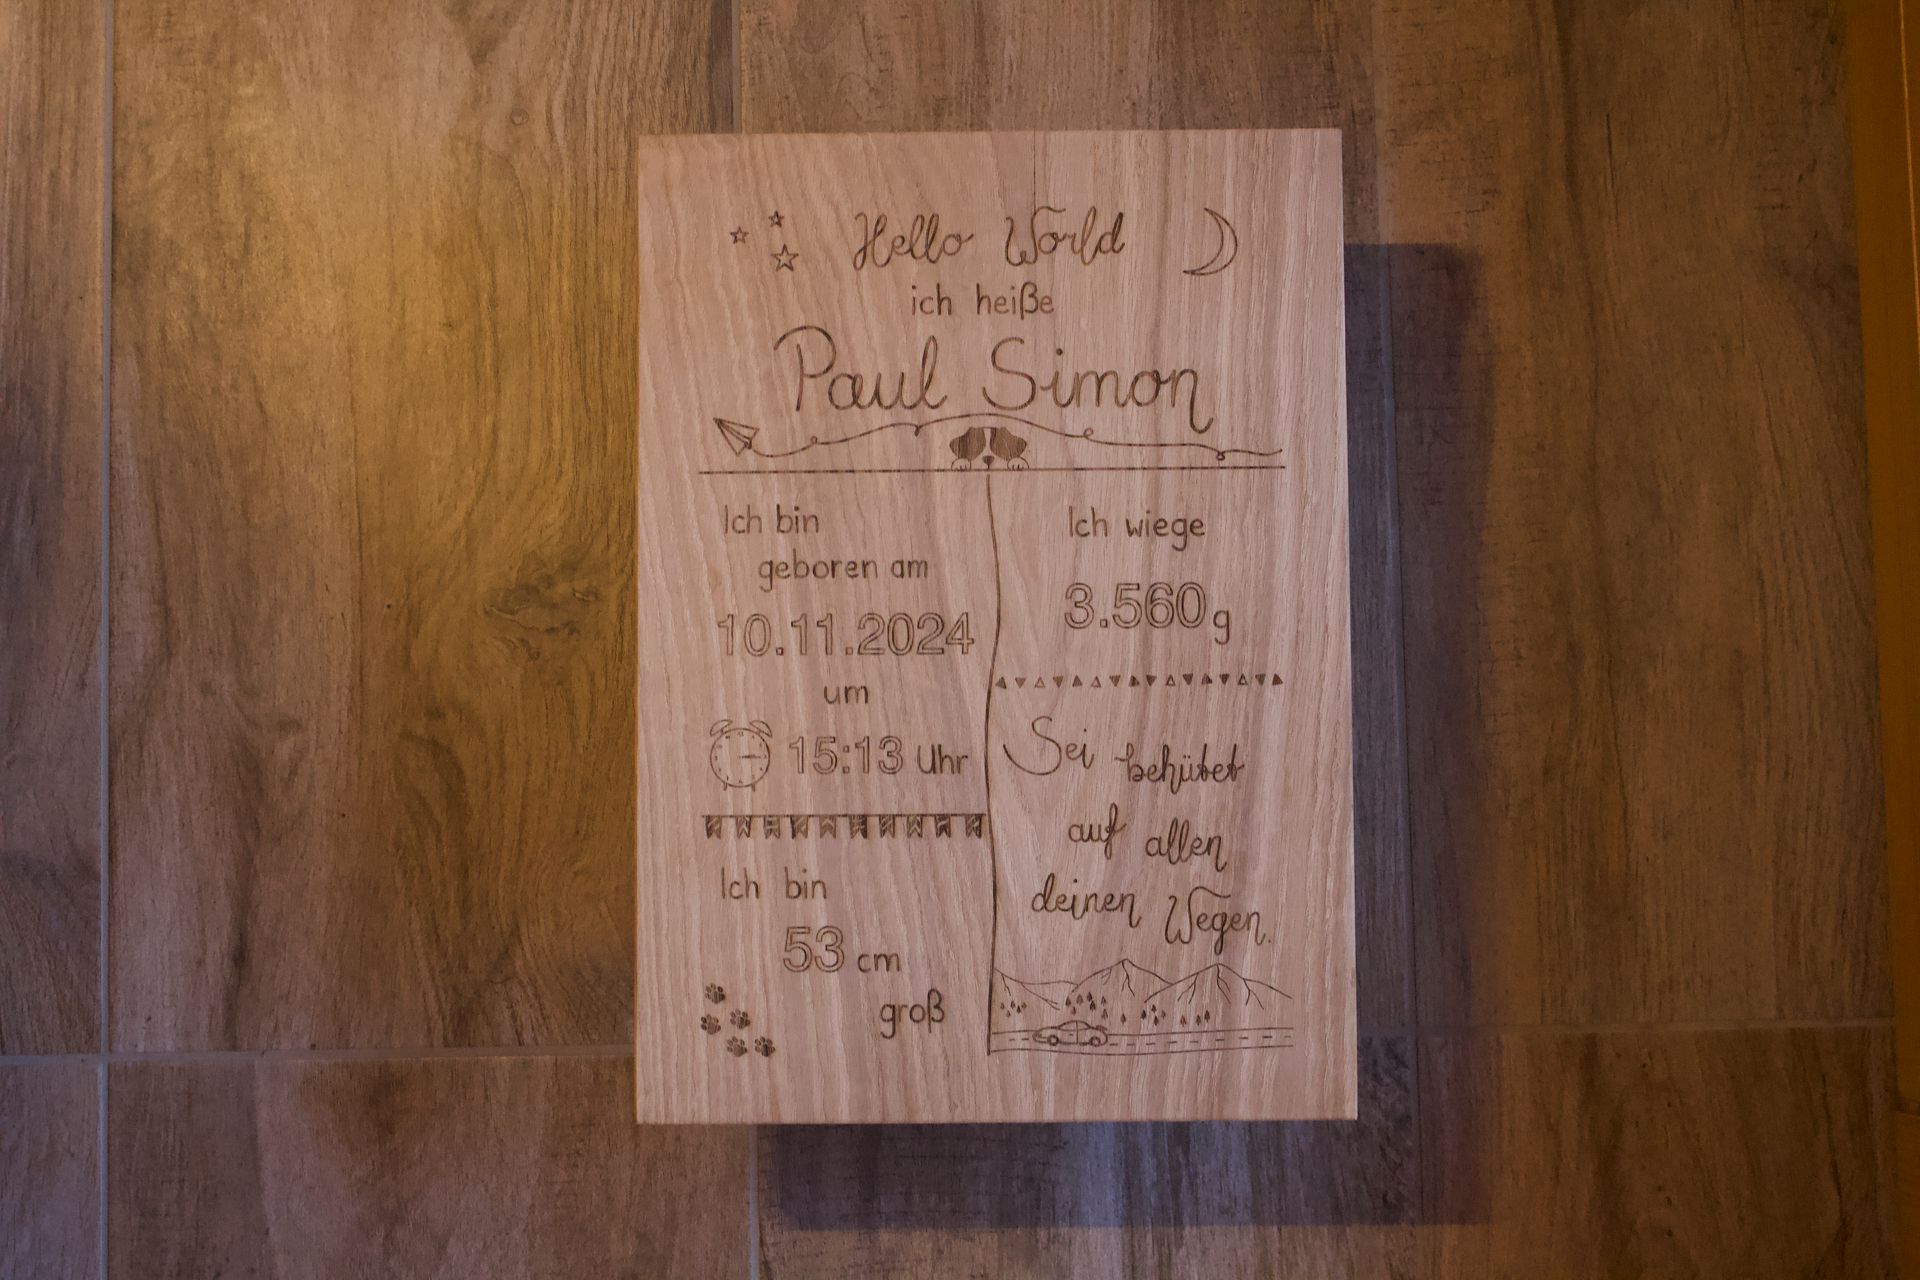 Hello World
ich heiße
Paul Simon
Ich bin
geboren am
10.11.2024
um
15:13 Uhr
Ich bin
53 cm
groß
Ich wiege
3.560g
Sei behütet
auf allen
deinen Wegen.